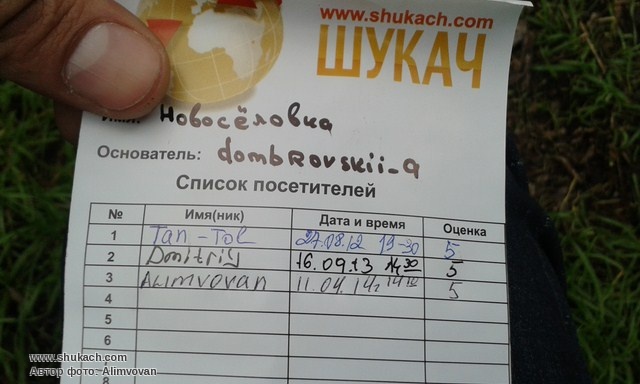 www.shukach.com
ШУКАЧ
Имя: Новосёловка
Основатель: dombRovskii-a
Список посетителей
№ Имя(ник) Дата и время Оценка
1 Tan-Tol 27.08.12 19-30 5
2 Dmitriy 16.09.13 14 30 5
3 ALimvovan 11.04.14г 5
4
5
6
7
8
www.shukach.com
Автор фото: Alimvovan